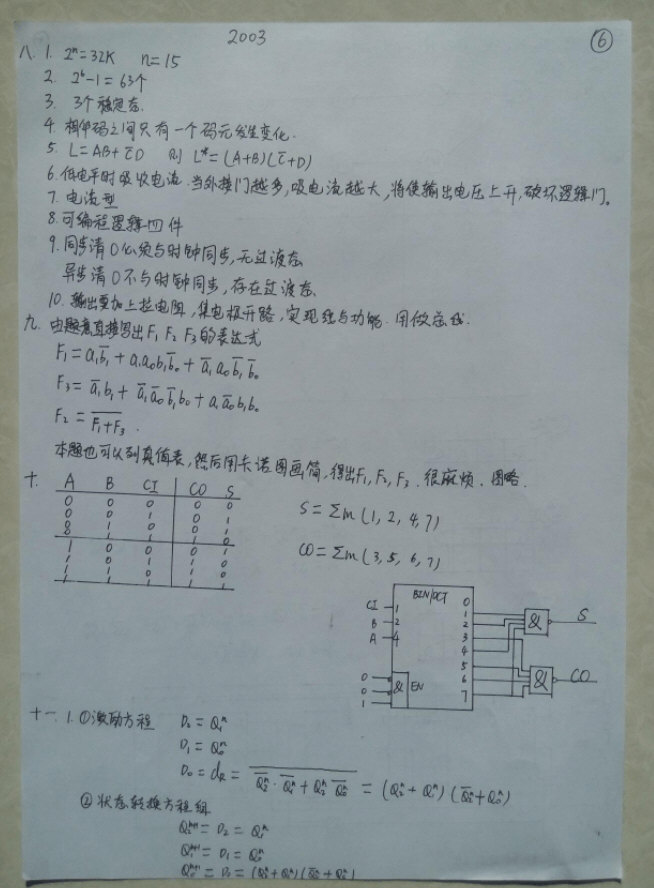 2003
⑥
八. 1. 2ⁿ=32K n=15
2. 2⁶-1=63个
3. 3个稳定态.
4. 相邻码之间只有一个码元发生变化.
5. L=AB+C̅D 则 L*=(A+B)(C̅+D)
6. 低电平时吸收电流. 当外接门越多,吸电流越大,将使输出电压上升,破坏逻辑门。
7. 电流型
8. 可编程逻辑四件
9. 同步清0必须与时钟同步,无过渡态
异步清0不与时钟同步,存在过渡态.
10. 输出要加上拉电阻,集电极开路,实现线与功能. 用做总线.
九. 由题意直接写出F₁ F₂ F₃的表达式
F₁=a₁b̅₁+a₁a₀b₁b̅₀+a̅₁a₀b̅₁b̅₀
F₃=a̅₁b₁+a̅₁a̅₀b̅₁b₀+a₁a̅₀b₁b₀
F₂=\overline{F₁+F₃}.
本题也可以列真值表,然后用卡诺图画简,得出F₁,F₂,F₃. 很麻烦. 图略.
十. A B CI CO S
0 0 0 0 0
0 0 1 0 1
0 1 0 0 1
0 1 1 1 0
1 0 0 0 1
1 0 1 1 0
1 1 0 1 0
1 1 1 1 1
S=Σm(1,2,4,7)
CO=Σm(3,5,6,7)
BIN/OCT
CI 1
B 2
A 4
0
1
2
3
4
5
6
7
& S
& CO
0
0 & EN
1
十一. 1. ①激励方程 D₂=Q₁ⁿ
D₁=Q₀ⁿ
D₀=d_R=\overline{Q̅₂ⁿ·Q̅₁ⁿ+Q₂ⁿQ̅₀ⁿ}=(Q₂ⁿ+Q₁ⁿ)(Q̅₂ⁿ+Q₀ⁿ)
②状态转换方程组
Q₂ⁿ⁺¹=D₂=Q₁ⁿ
Q₁ⁿ⁺¹=D₁=Q₀ⁿ
Q₀ⁿ⁺¹=D₀=(Q₂ⁿ+Q₁ⁿ)(Q̅₂ⁿ+Q₀ⁿ)